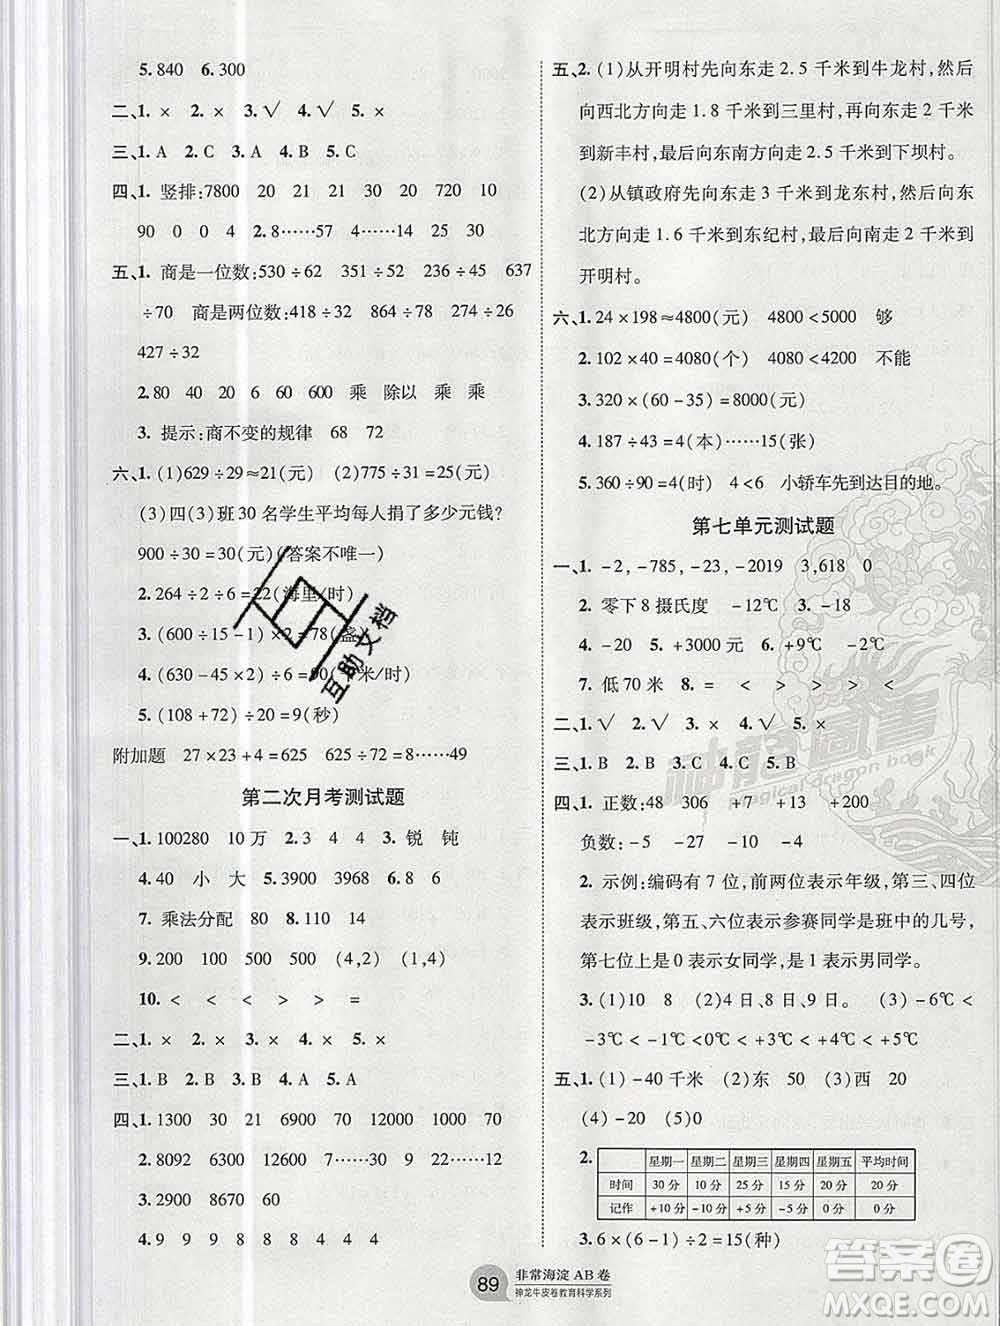 5.840 6.300
二、1. × 2. × 3. √ 4. √ 5. ×
三、1. A 2. C 3. A 4. B 5. C
四、1. 竖排:7800 20 21 30 20 720 10
90 0 0 4 2.8……57 4……14 25 30
五、1. 商是一位数:530÷62 351÷52 246÷45 637
÷70 商是两位数:418÷32 864÷78 274÷26
427÷32
2.80 40 20 60 600 乘 除以 乘 乘
3. 提示:商不变的规律 68 72
六、1. (1)629÷29≈21(元) (2)775÷31=25(元)
(3)四(3)班30名学生平均每人捐了多少元钱?
900÷30=30(元)(答案不唯一)
2.264÷2÷6=22(海里/时)
3. (600÷15-1)×2=78(盏)
4. (630-45×2)÷6=90(千米/时)
5. (108+72)÷20=9(秒)
附加题 27×23+4=625 625÷72=8……49
第二次月考测试题
一、1.100280 10万 2.3 4 4 3. 锐 钝
4.40 小 大 5.3900 3968 6.8 6
7. 乘法分配 80 8.110 14
9.200 100 500 500 (4,2) (1,4)
10. < < < > > =
二、1. × 2. × 3. × 4. × 5. ×
三、1. A 2. A 3. B 4. A 5. A
四、1.1300 30 21 6900 70 12000 490
2.8092 6300 12……22 6……12
3.2900 8670 60
4.9 9 9 8 8 8 4 4 4
五、2. (1)从开明村先向东走2.5千米到牛龙村,然后
向西北方向走1.8千米到三里村,再向东走2千米
到新丰村,最后向东南方向走2.5千米到下坝村。
(2)从镇政府先向东走3千米到龙东村,然后向东
北方向走1.6千米到东纪村,最后向南走2千米到
开明村。
六、1.24×198≈4800(元) 4800<5000 够
2.102×40=4080(个) 4080<4200 不能
3.320×(60-35)=8000(元)
4.187÷43=4(本)……15(张)
5.360÷90=4(时) 4<6 小轿车先到达目的地。
第七单元测试题
一、1. -2,-785,-23,-2019 3,618 0
2. 零下8摄氏度 -12℃ 3. -18
4. -20 5. +3000元 6. +9℃ -2℃
7. 低70米 8. = < > > > <
二、1. √ 2. √ 3. × 4. √ 5. ×
三、1. B 2. A 3. C 4. C 5. B
四、1. 正数:48 306 +7 +13 +200
负数:-5 -27 -10 -2
2. 示例:编码有7位,前两位表示年级,第三、四位
表示班级,第五、六位表示参赛同学是班中的几号,
第七位上是0表示女同学,是1表示男同学。
3. (1)10 8 (2)4日、8日、9日。 (3)-6℃<
-3℃<-1℃<0℃<+3℃<+5℃<+8℃
五、1. (1)-40千米 (2)东 50 (3)西 20
(4)-20 (5)0
2. 星期一 星期二 星期三 星期四 星期五 平均时间
时间 30分 10分 25分 15分 20分 20分
记作 +10分 -10分 +5分 -5分 0分 0分
3.6×(6-1)÷2=15(种)
89 非常海淀AB卷
神龙牛皮卷教育科学系列
互助文档
神龙图书
magical dragon book
答案圈
MXQE.COM